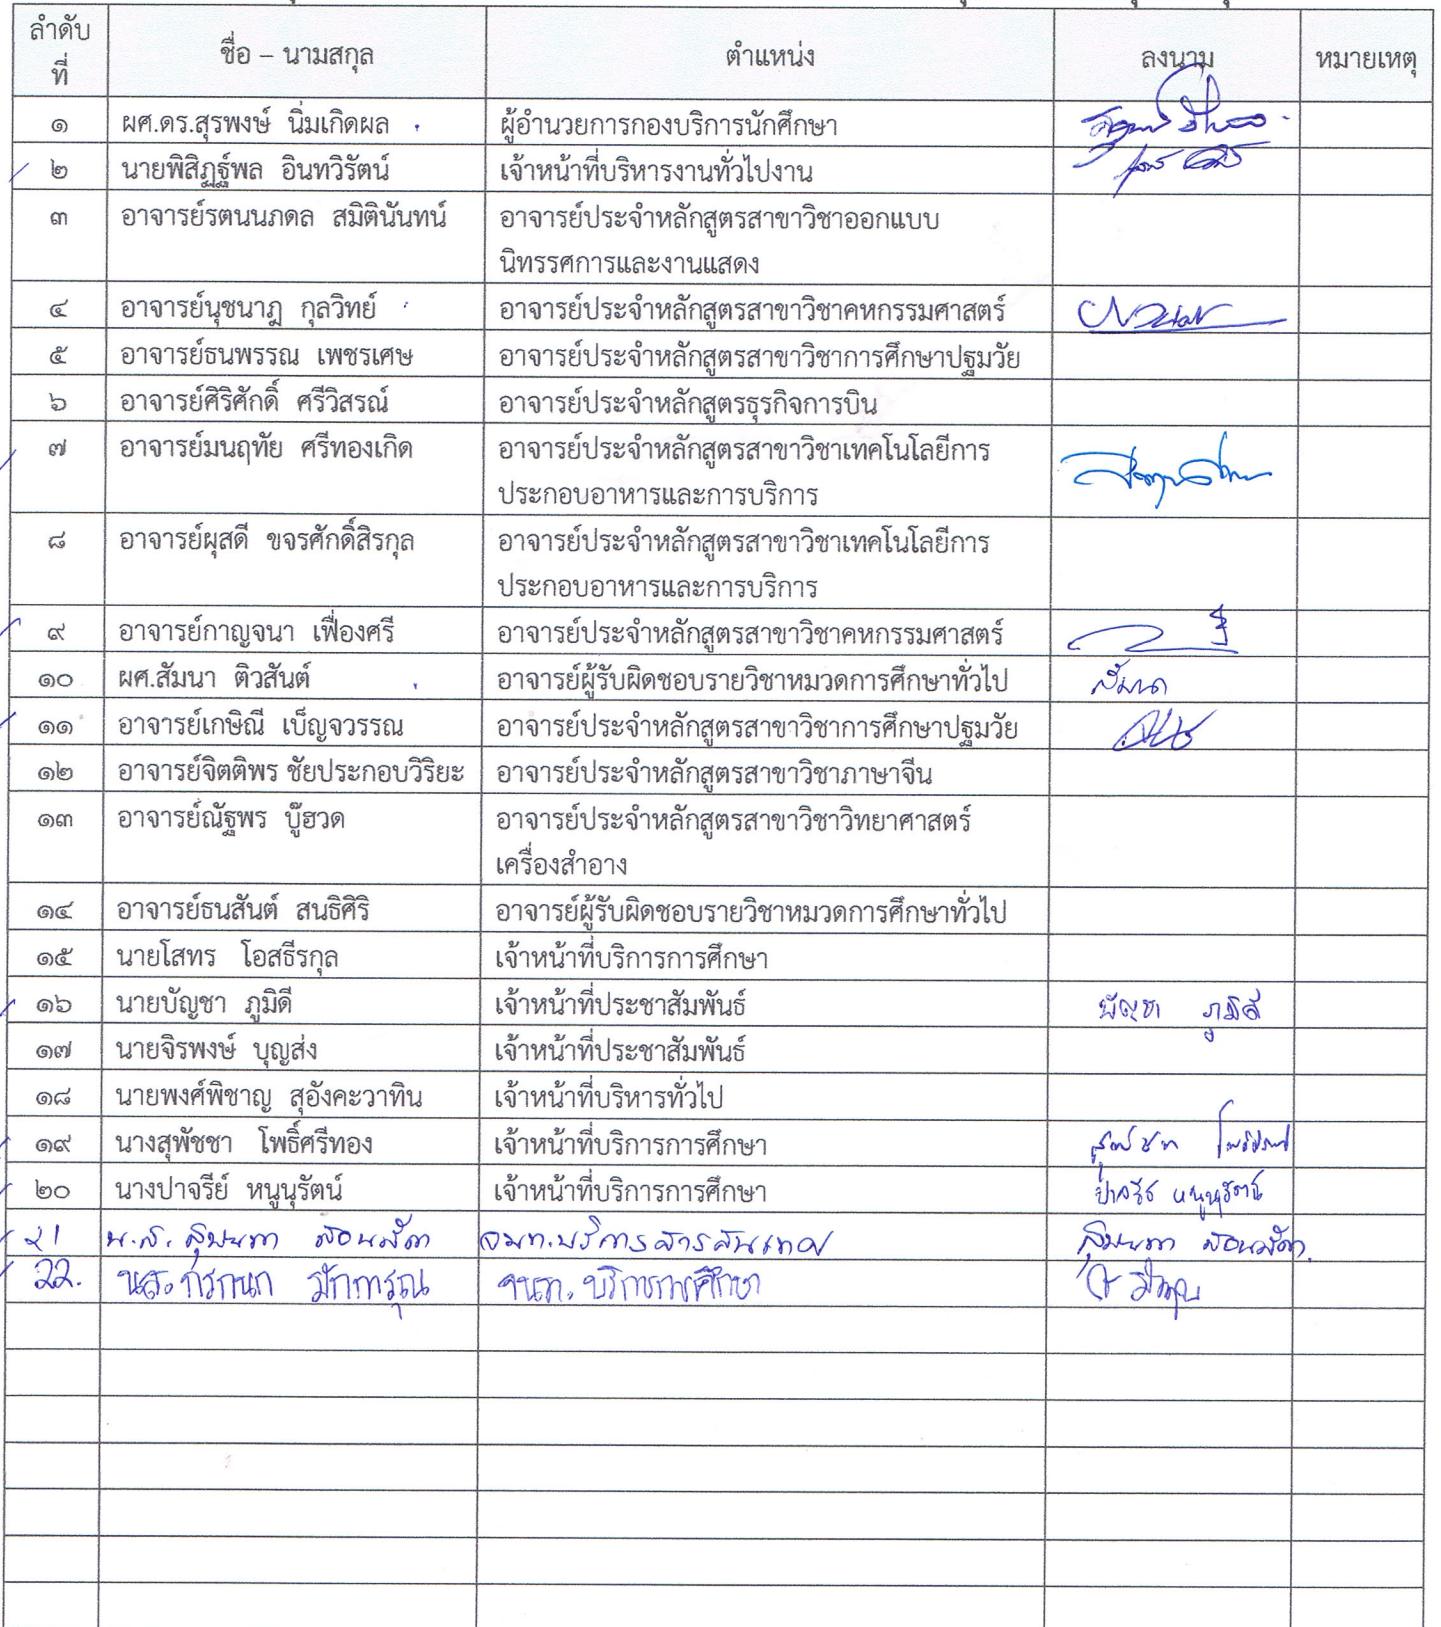 ลำดับที่ ชื่อ – นามสกุล ตำแหน่ง ลงนาม หมายเหตุ
๑ ผศ.ดร.สุรพงษ์ นิ่มเกิดผล ผู้อำนวยการกองบริการนักศึกษา
๒ นายพิสิฏฐ์พล อินทวิรัตน์ เจ้าหน้าที่บริหารงานทั่วไปงาน
๓ อาจารย์รตนนภดล สมิตินันทน์ อาจารย์ประจำหลักสูตรสาขาวิชาออกแบบ
นิทรรศการและงานแสดง
๔ อาจารย์นุชนาฎ กุลวิทย์ อาจารย์ประจำหลักสูตรสาขาวิชาคหกรรมศาสตร์
๕ อาจารย์ธนพรรณ เพชรเศษ อาจารย์ประจำหลักสูตรสาขาวิชาการศึกษาปฐมวัย
๖ อาจารย์ศิริศักดิ์ ศรีวิสรณ์ อาจารย์ประจำหลักสูตรธุรกิจการบิน
๗ อาจารย์มนฤทัย ศรีทองเกิด อาจารย์ประจำหลักสูตรสาขาวิชาเทคโนโลยีการ
ประกอบอาหารและการบริการ
๘ อาจารย์ผุสดี ขจรศักดิ์สิรกุล อาจารย์ประจำหลักสูตรสาขาวิชาเทคโนโลยีการ
ประกอบอาหารและการบริการ
๙ อาจารย์กาญจนา เฟื่องศรี อาจารย์ประจำหลักสูตรสาขาวิชาคหกรรมศาสตร์
๑๐ ผศ.สัมนา ติวสันต์ อาจารย์ผู้รับผิดชอบรายวิชาหมวดการศึกษาทั่วไป สัมนา
๑๑ อาจารย์เกษิณี เบ็ญจวรรณ อาจารย์ประจำหลักสูตรสาขาวิชาการศึกษาปฐมวัย
๑๒ อาจารย์จิตติพร ชัยประกอบวิริยะ อาจารย์ประจำหลักสูตรสาขาวิชาภาษาจีน
๑๓ อาจารย์ณัฐพร บู๊ฮวด อาจารย์ประจำหลักสูตรสาขาวิชาวิทยาศาสตร์
เครื่องสำอาง
๑๔ อาจารย์ธนสันต์ สนธิศิริ อาจารย์ผู้รับผิดชอบรายวิชาหมวดการศึกษาทั่วไป
๑๕ นายโสทร โอสธีรกุล เจ้าหน้าที่บริการการศึกษา
๑๖ นายบัญชา ภูมิดี เจ้าหน้าที่ประชาสัมพันธ์ บัญชา ภูมิดี
๑๗ นายจิรพงษ์ บุญส่ง เจ้าหน้าที่ประชาสัมพันธ์
๑๘ นายพงศ์พิชาญ สุอังคะวาทิน เจ้าหน้าที่บริหารทั่วไป
๑๙ นางสุพัชชา โพธิ์ศรีทอง เจ้าหน้าที่บริการการศึกษา สุพัชชา
๒๐ นางปาจรีย์ หนูนุรัตน์ เจ้าหน้าที่บริการการศึกษา ปาจรีย์ หนูนุรัตน์
21 น.ส. จนท.บริการสารสนเทศ
22. นส. กรกนก จนท. บริการการศึกษา